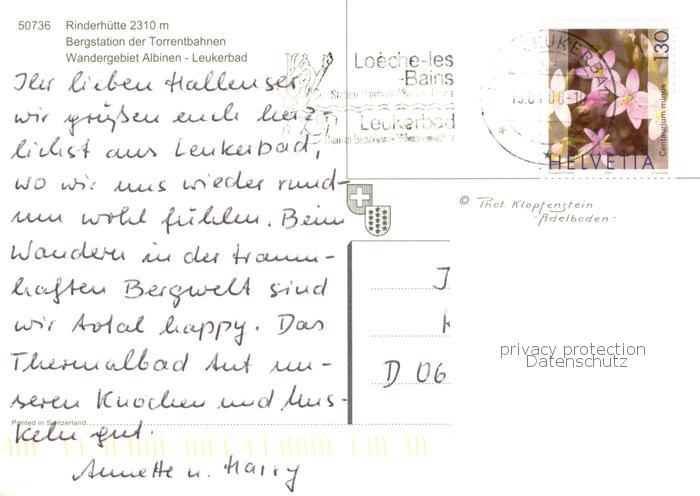 50736 Rinderhütte 2310 m
Bergstation der Torrentbahnen
Wandergebiet Albinen - Leukerbad
Ihr lieben Hallenser,
wir grüßen euch herz-
lichst aus Leukerbad,
wo wir uns wieder rund-
um wohl fühlen. Beim
Wandern in der traum-
haften Bergwelt sind
wir total happy. Das
Thermalbad tut un-
seren Knochen und Mus-
keln gut.
Annette u. Harry
Printed in Switzerland
Loèche-les
-Bains
Leukerbad
LEUKERBAD
130
Centaurium minus
HELVETIA
© Phot. Klopfenstein
- Adelboden -
D 06
privacy protection
Datenschutz